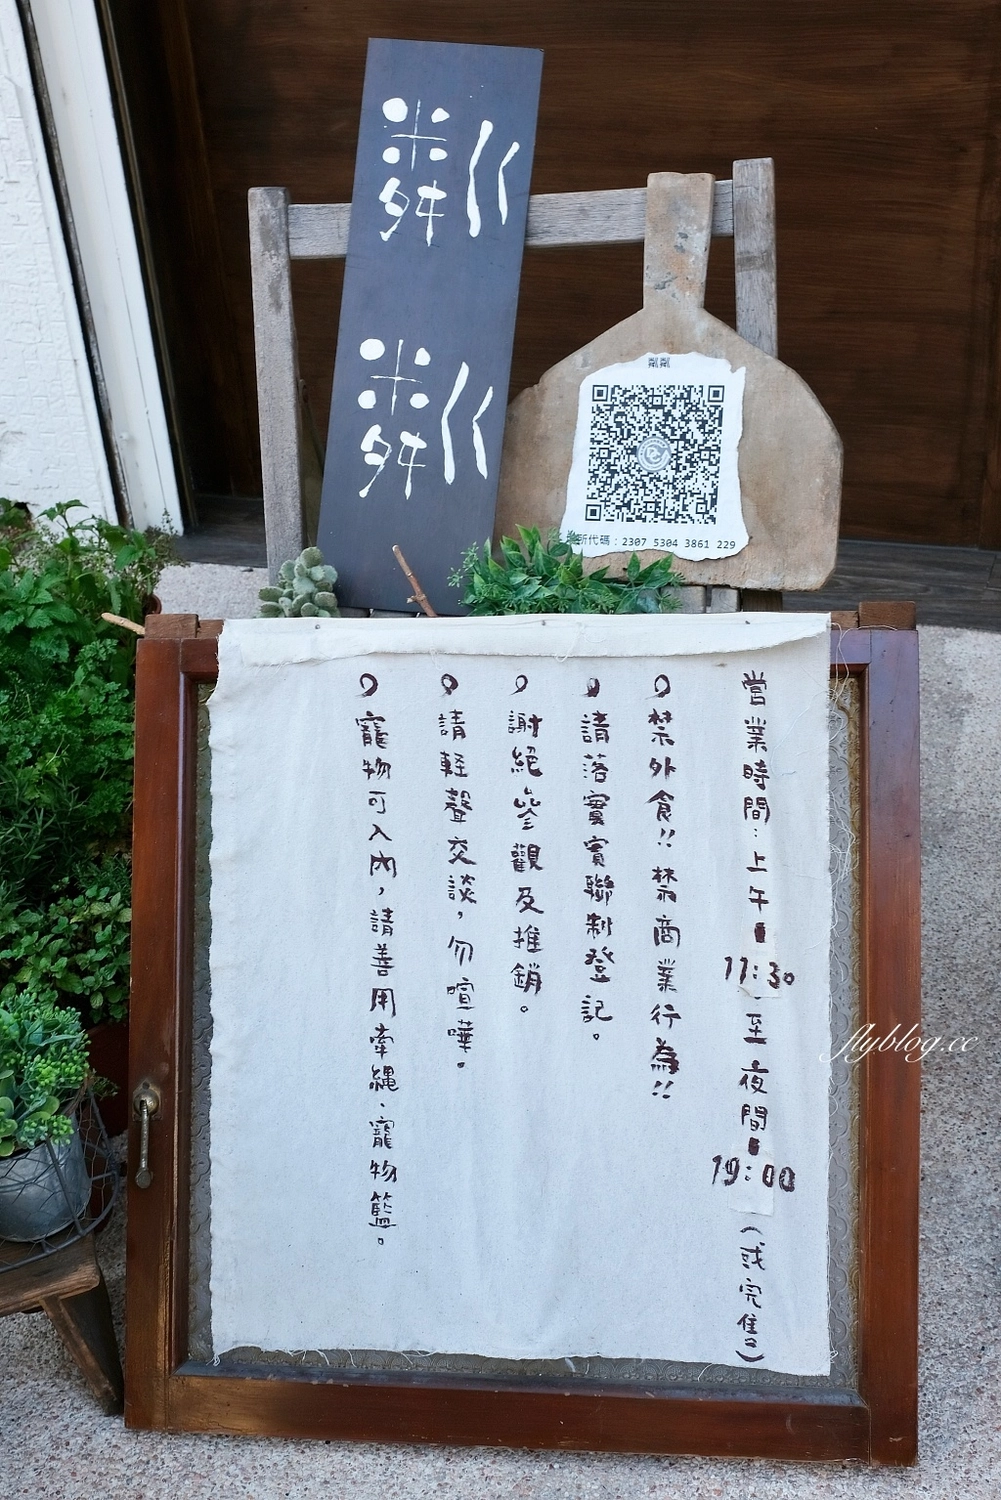 粼粼
粼粼
場所代碼：2307 5304 3861 229
營業時間：上午11:30至夜間19:00（或完售）
禁外食!! 禁商業行為!!
請落實實聯制登記。
謝絕參觀及推銷。
請輕聲交談，勿喧嘩。
寵物可入內，請善用牽繩、寵物籃。
flyblog.cc